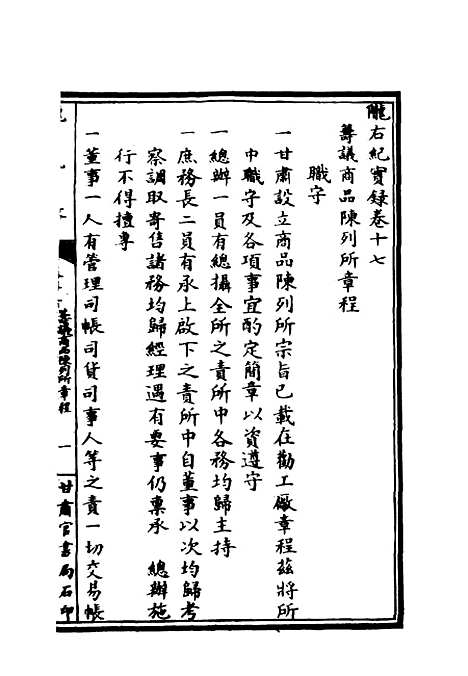 隴右紀實錄卷十七
籌議商品陳列所章程
職守
一甘肅設立商品陳列所宗旨已載在勸工廠章程茲將所
中職守及各項事宜酌定簡章以資遵守
一總辦一員有總攝全所之責所中各務均歸主持
一庶務長二員有承上啟下之責所中自董事以次均歸考
察調取寄售諸務均歸經理遇有要事仍稟承 總辦施
行不得擅專
一董事一人有管理司帳司貨司事人等之責一切交易帳
籌議商品陳列所章程 一 甘肅官書局石印